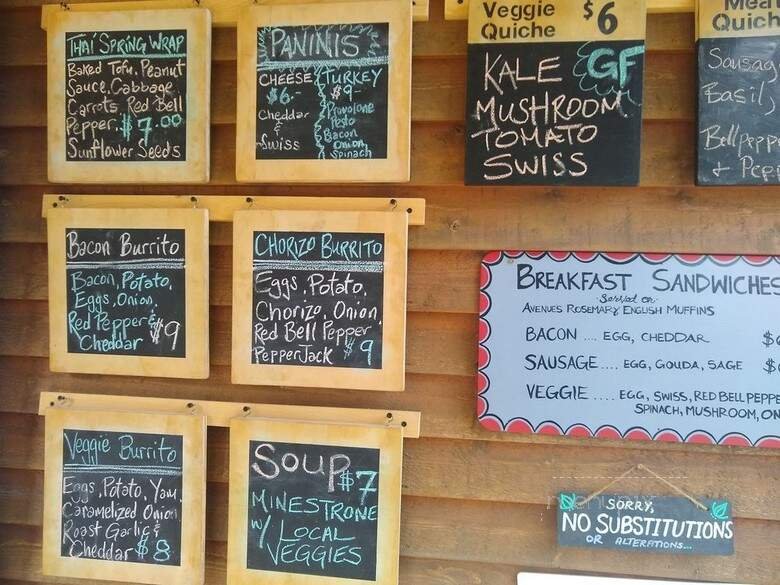 THAI SPRING WRAP
Baked Tofu, Peanut
Sauce, Cabbage,
Carrots, Red Bell
Pepper, $7.00
Sunflower Seeds
PANINIS
CHEESE
$6.-
Cheddar
&
Swiss
TURKEY
$9
Provolone
Pesto
Bacon
Onion
Spinach
Veggie
Quiche $6
KALE GF
MUSHROOM
TOMATO
SWISS
Meat
Quich
Sausag
Basil,
Bellpepp
+ Pepp
Bacon Burrito
Bacon, Potato,
Eggs, Onion,
Red Pepper &
Cheddar $9
CHORIZO BURRITO
Eggs, Potato,
Chorizo, Onion,
Red Bell Pepper
PepperJack $9
BREAKFAST SANDWICHES
Served on
AVENUES ROSEMARY ENGLISH MUFFINS
BACON .... EGG, CHEDDAR $6
SAUSAGE .... EGG, GOUDA, SAGE $
VEGGIE .... EGG, SWISS, RED BELL PEPPE
SPINACH, MUSHROOM, ON
Veggie Burrito
Eggs, Potato, Yam,
Caramelized Onion
Roast Garlic &
Cheddar $8
Soup $7
MINESTRONE
W/ LOCAL
VEGGIES
SORRY,
NO SUBSTITUTIONS
OR ALTERATIONS...